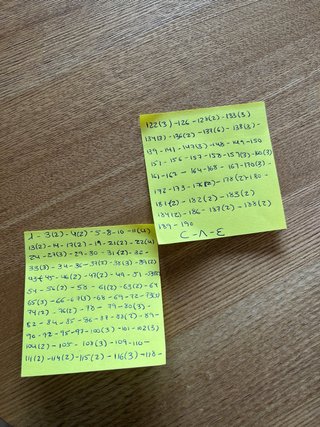 122(3) - 126 - 127(2) - 133(3)
134(3) - 136(2) - 137(6) - 138(3) -
139 - 141 - 147(3) - 148 - 149 - 150
151 - 156 - 157 - 158 - 159(3) - 160(3)
161 - 163 - 164 - 168 - 169 - 170(3) -
172 - 173 - 176(2) - 178(2) - 180 -
181(2) - 182(2) - 183(2)
184(2) - 186 - 187(2) - 188(2)
189 - 190
1 - 3(2) - 4(2) - 5 - 8 - 10 - 11(4)
13(2) - 14 - 17(2) - 19 - 21(2) - 22(4)
24 - 27(3) - 29 - 30 - 31(2) - 32 -
33(3) - 34 - 36 - 37(2) - 38(3) - 39(2)
43 - 45 - 46(2) - 47(2) - 49 - 51 -
54 - 56(2) - 58 - 61(2) - 63(2) - 64
65(3) - 66 - 67(3) - 68 - 69 - 72 - 73(3)
74(2) - 76(2) - 78 - 79 - 80(3) -
82 - 84 - 85 - 86 - 87 - 88(2) - 89 -
90 - 92 - 95 - 97 - 100(3) - 101 - 102(3)
104(2) - 105 - 108(3) - 109 - 110 -
111(2) - 114(2) - 115(2) - 116(3) - 118 -